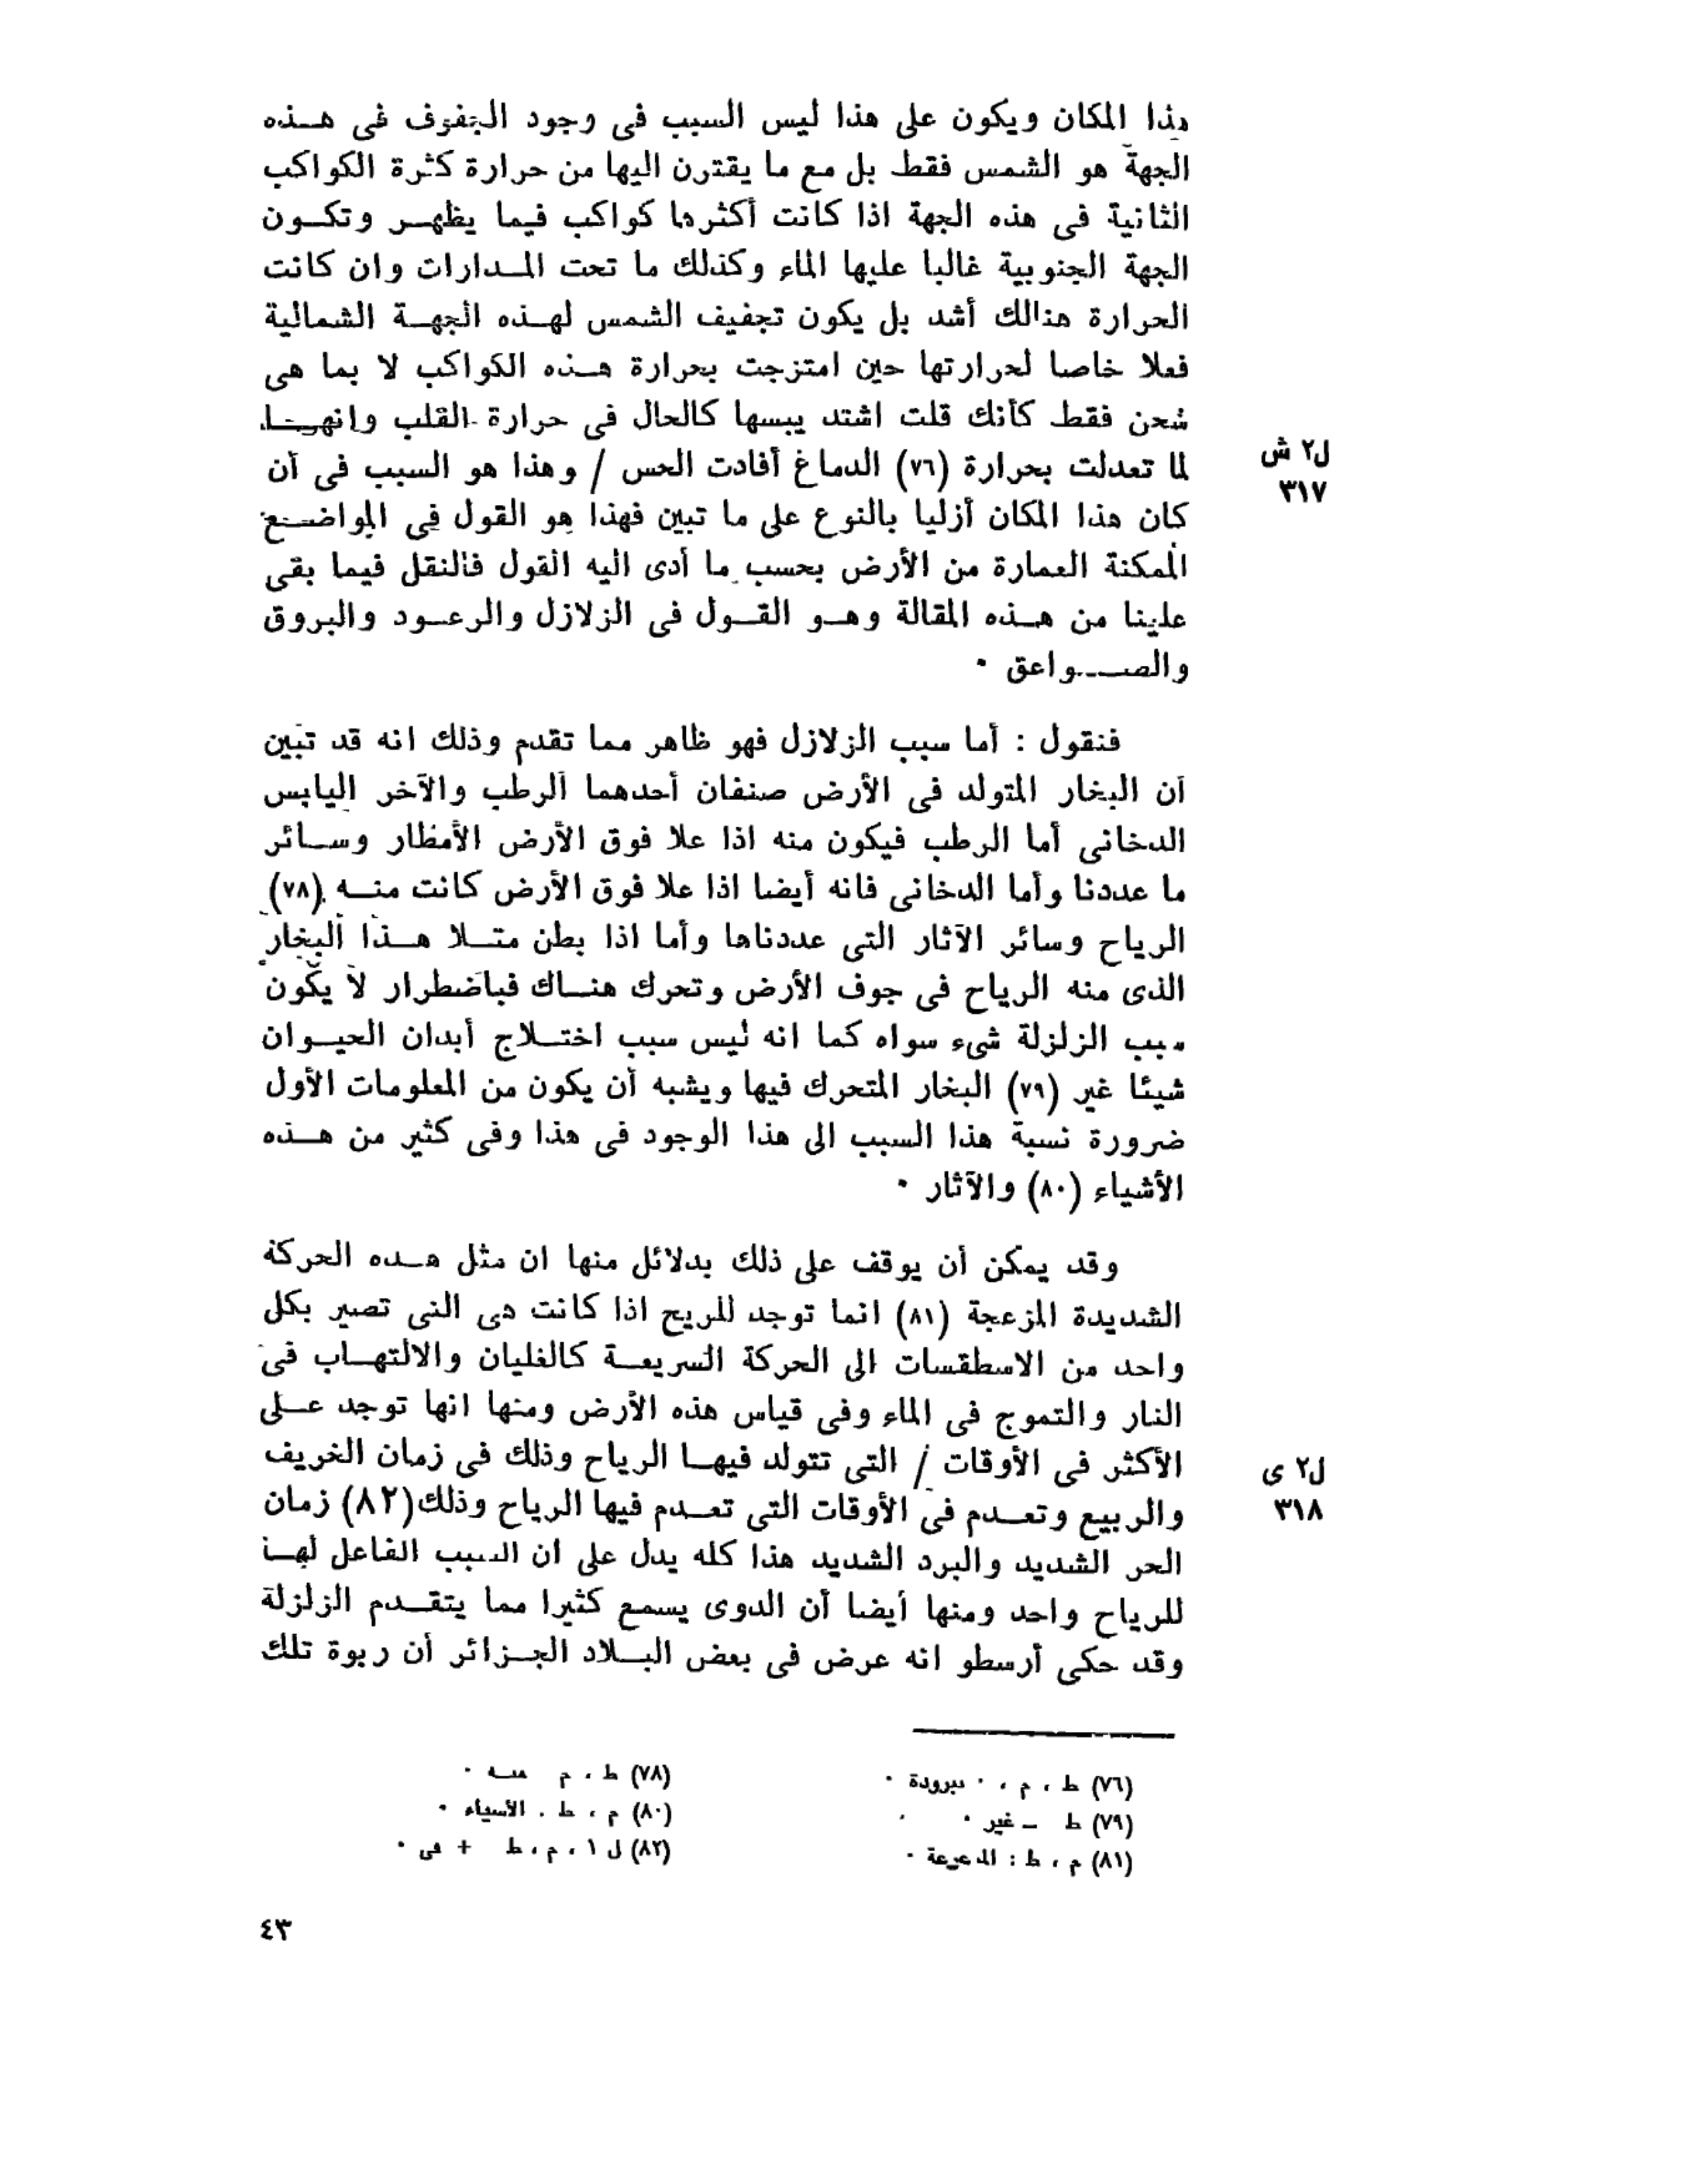 هذا المكان ويكون على هذا ليس السبب فى وجود الجفوف فى هذه
الجهة هو الشمس فقط بل مع ما يقترن اليها من حرارة كثرة الكواكب
الثانية فى هذه الجهة اذا كانت أكثرها كواكب فيما يظهر وتكون
الجهة الجنوبية غالبا عليها الماء وكذلك ما تحت المدارات وان كانت
الحرارة هنالك أشد بل يكون تجفيف الشمس لهذه الجهة الشمالية
فعلا خاصا لحرارتها حين امتزجت بحرارة هذه الكواكب لا بما هى
شحن فقط كأنك قلت اشتد يبسها كالحال فى حرارة القلب وانها
لما تعدلت بحرارة (٧٦) الدماغ أفادت الحس / وهذا هو السبب فى أن
ل٢ ش
٣١٧
كان هذا المكان أزليا بالنوع على ما تبين فهذا هو القول فى المواضع
الممكنة العمارة من الأرض بحسب ما أدى اليه القول فالنقل فيما بقى
علينا من هذه المقالة وهو القول فى الزلازل والرعود والبروق
والصواعق ٠
فنقول : أما سبب الزلازل فهو ظاهر مما تقدم وذلك انه قد تبين
أن البخار المتولد فى الأرض صنفان أحدهما الرطب والآخر اليابس
الدخانى أما الرطب فيكون منه اذا علا فوق الأرض الأمطار وسائر
ما عددنا وأما الدخانى فانه أيضا اذا علا فوق الأرض كانت منه (٧٨)
الرياح وسائر الآثار التى عددناها وأما اذا بطن متلا هذا البخار
الذى منه الرياح فى جوف الأرض وتحرك هناك فباضطرار لا يكون
سبب الزلزلة شىء سواه كما انه ليس سبب اختلاج أبدان الحيوان
شيئا غير (٧٩) البخار المتحرك فيها ويشبه أن يكون من المعلومات الأول
ضرورة نسبة هذا السبب الى هذا الوجود فى هذا وفى كثير من هذه
الأشياء (٨٠) والآثار ٠
وقد يمكن أن يوقف على ذلك بدلائل منها ان مثل هده الحركة
الشديدة المزعجة (٨١) انما توجد للريح اذا كانت هى التى تصير بكل
واحد من الاسطقسات الى الحركة السريعة كالغليان والالتهاب فى
النار والتموج فى الماء وفى قياس هذه الأرض ومنها انها توجد على
الأكثر فى الأوقات / التى تتولد فيها الرياح وذلك فى زمان الخريف
ل٢ ى
٣١٨
والربيع وتعدم فى الأوقات التى تعدم فيها الرياح وذلك(٨٢) زمان
الحر الشديد والبرد الشديد هذا كله يدل على ان السبب الفاعل لها
للرياح واحد ومنها أيضا أن الدوى يسمع كثيرا مما يتقدم الزلزلة
وقد حكى أرسطو انه عرض فى بعض البلاد الجزائر أن ربوة تلك
(٧٦) ط ، م ، ٠ ببرودة ٠
(٧٨) ط ، م منه ٠
(٧٩) ط ــ غير ٠
(٨٠) م ، ط . الأسياء ٠
(٨١) م ، ط :
(٨٢) ل ١ ، م ، ط + فى ٠
٤٣